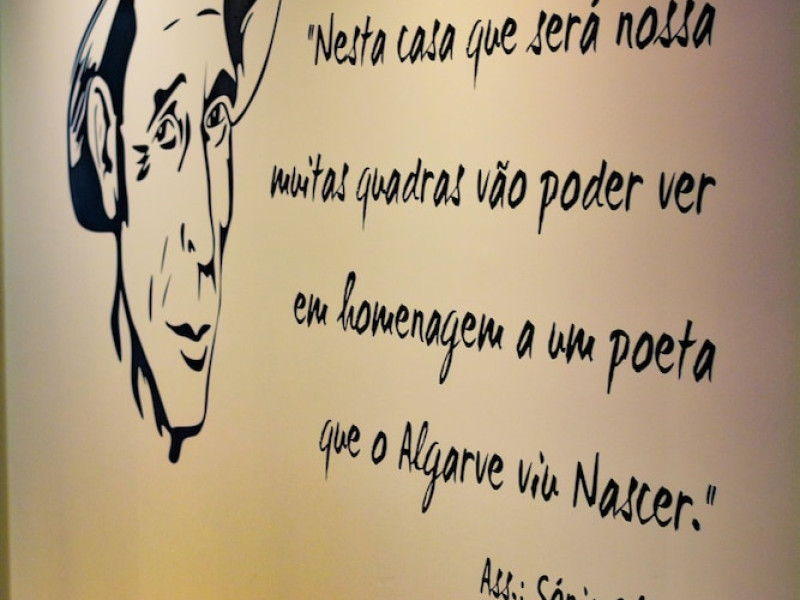 "Nesta casa que será nossa
muitas quadras vão poder ver
em homenagem a um poeta
que o Algarve viu Nascer."
Ass.: